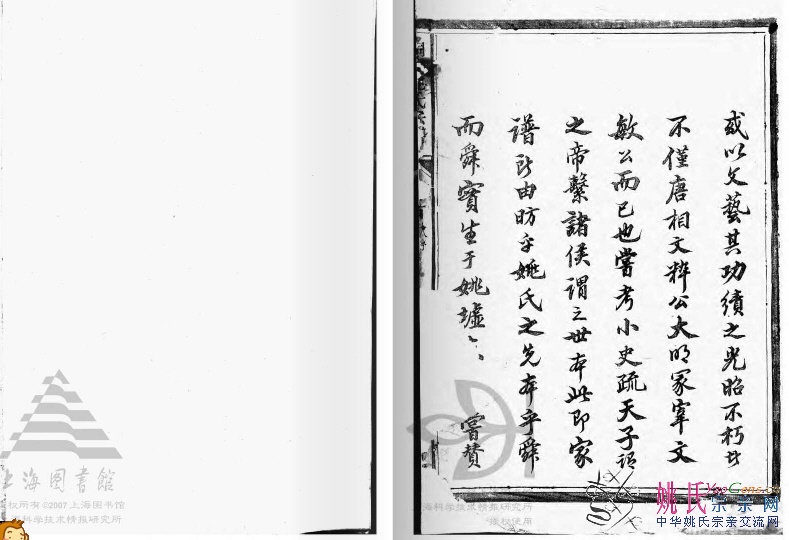 或以文藝其功績之光昭不朽者
不僅唐相文粹公大明冢宰文
敏公而已也嘗考小史疏天子謂
之帝繫諸侯謂之世本此即家
譜所由昉乎姚氏之先本乎舜
而舜實生于姚墟
嘗贊
上海圖書館
权所有©2007上海图书馆
科学技术情报研究所
海科学技术情报研究所
授权使用
姚氏宗亲网
中华姚氏宗亲交流网